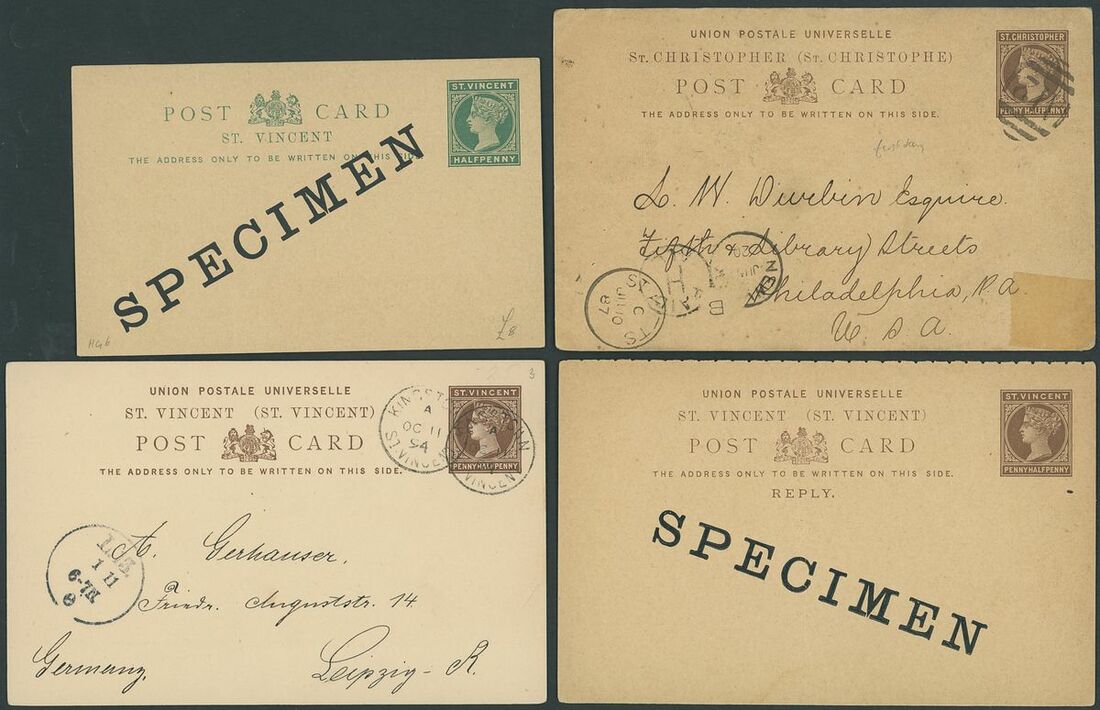 POST CARD
ST. VINCENT
THE ADDRESS ONLY TO BE WRITTEN ON THIS SIDE.
ST. VINCENT
HALFPENNY
SPECIMEN
HG6
£8
UNION POSTALE UNIVERSELLE
ST. CHRISTOPHER (ST. CHRISTOPHE)
POST CARD
THE ADDRESS ONLY TO BE WRITTEN ON THIS SIDE.
ST. CHRISTOPHER
PENNY HALFPENNY
first day
L. W. Durbin Esquire.
Fifth & Library Streets
Philadelphia, P.A
U.S.A.
ST KITTS
C
JU 10
87
3
UNION POSTALE UNIVERSELLE
ST. VINCENT (ST. VINCENT)
POST CARD
THE ADDRESS ONLY TO BE WRITTEN ON THIS SIDE.
ST. VINCENT
PENNY HALFPENNY
KINGSTO
A
OC 11
94
ST. VINCENT
VINCENT
1 11
6-7N
A. Gerhauser.
Friedr. Auguststr. 14.
Leipzig - R.
Germany.
UNION POSTALE UNIVERSELLE
ST. VINCENT (ST. VINCENT)
POST CARD
THE ADDRESS ONLY TO BE WRITTEN ON THIS SIDE.
REPLY.
ST. VINCENT
PENNY HALFPENNY
SPECIMEN